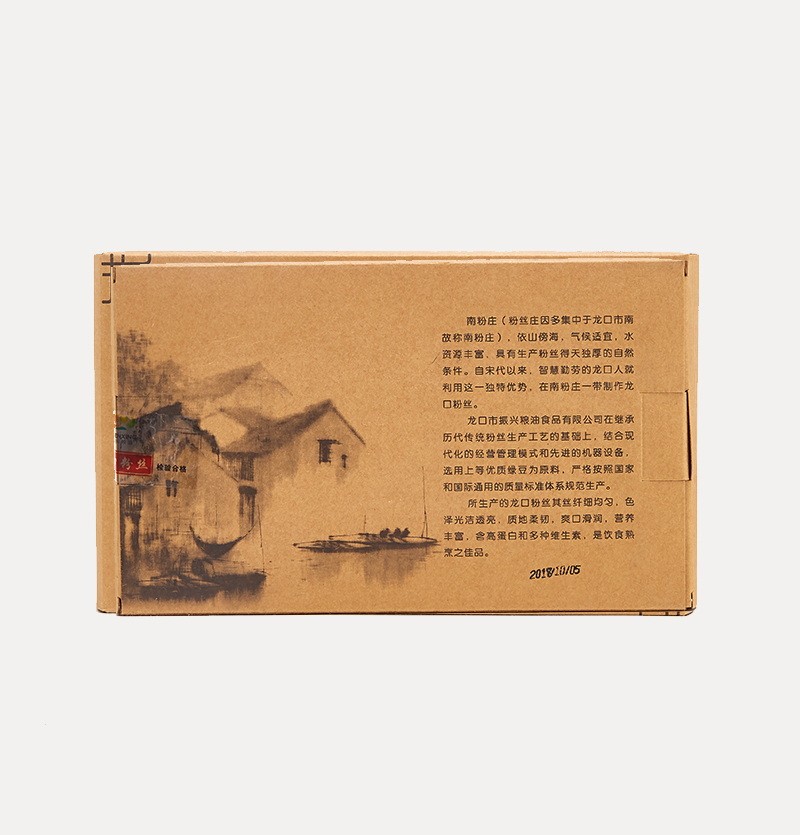 南粉庄（粉丝庄因多集中于龙口市南
故称南粉庄），依山傍海，气候适宜，水
资源丰富，具有生产粉丝得天独厚的自然
条件。自宋代以来，智慧勤劳的龙口人就
利用这一独特优势，在南粉庄一带制作龙
口粉丝。
龙口市振兴粮油食品有限公司在继承
历代传统粉丝生产工艺的基础上，结合现
代化的经营管理模式和先进的机器设备，
选用上等优质绿豆为原料，严格按照国家
和国际通用的质量标准体系规范生产。
所生产的龙口粉丝其丝纤细均匀，色
泽光洁透亮，质地柔韧，爽口滑润，营养
丰富，含高蛋白和多种维生素，是饮食熟
烹之佳品。
2018/10/05
粉丝
检验合格